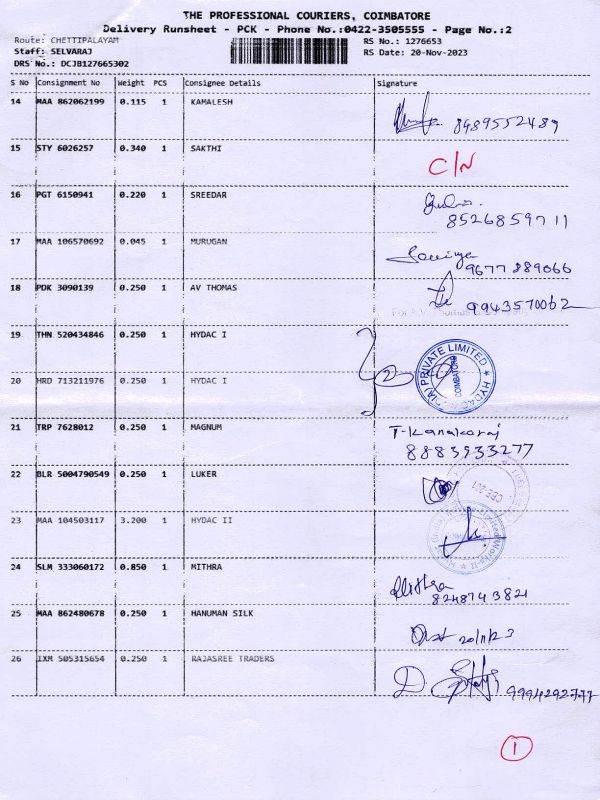 THE PROFESSIONAL COURIERS, COIMBATORE
Delivery Runsheet - PCK - Phone No.:0422-3505555 - Page No.:2
Route: CHETTIPALAYAM
RS No.: 1276653
Staff: SELVARAJ
RS Date: 20-Nov-2023
DRS No.: DCJB127665302
S No Consignment No Weight PCS Consignee Details Signature
14 MAA 862062199 0.115 1 KAMALESH
8489552489
15 STY 6026257 0.340 1 SAKTHI
C/N
16 PGT 6150941 0.220 1 SREEDAR
8526859711
17 MAA 106570692 0.045 1 MURUGAN
9677889066
18 PDK 3090139 0.250 1 AV THOMAS
9943570062
19 THN 520434846 0.250 1 HYDAC I
PRIVATE LIMITED
COIMBATORE
HYDAC
20 HRD 713211976 0.250 1 HYDAC I
2
21 TRP 7628012 0.250 1 MAGNUM
T-Kanakaraj
8883933277
22 BLR 5004790549 0.250 1 LUKER
CBE 201
23 MAA 104503117 3.200 1 HYDAC II
24 SLM 333060172 0.850 1 MITHRA
Mithra
8248743821
25 MAA 862480678 0.250 1 HANUMAN SILK
20/11/23
26 IXM 505315654 0.250 1 RAJASREE TRADERS
9994292777
1